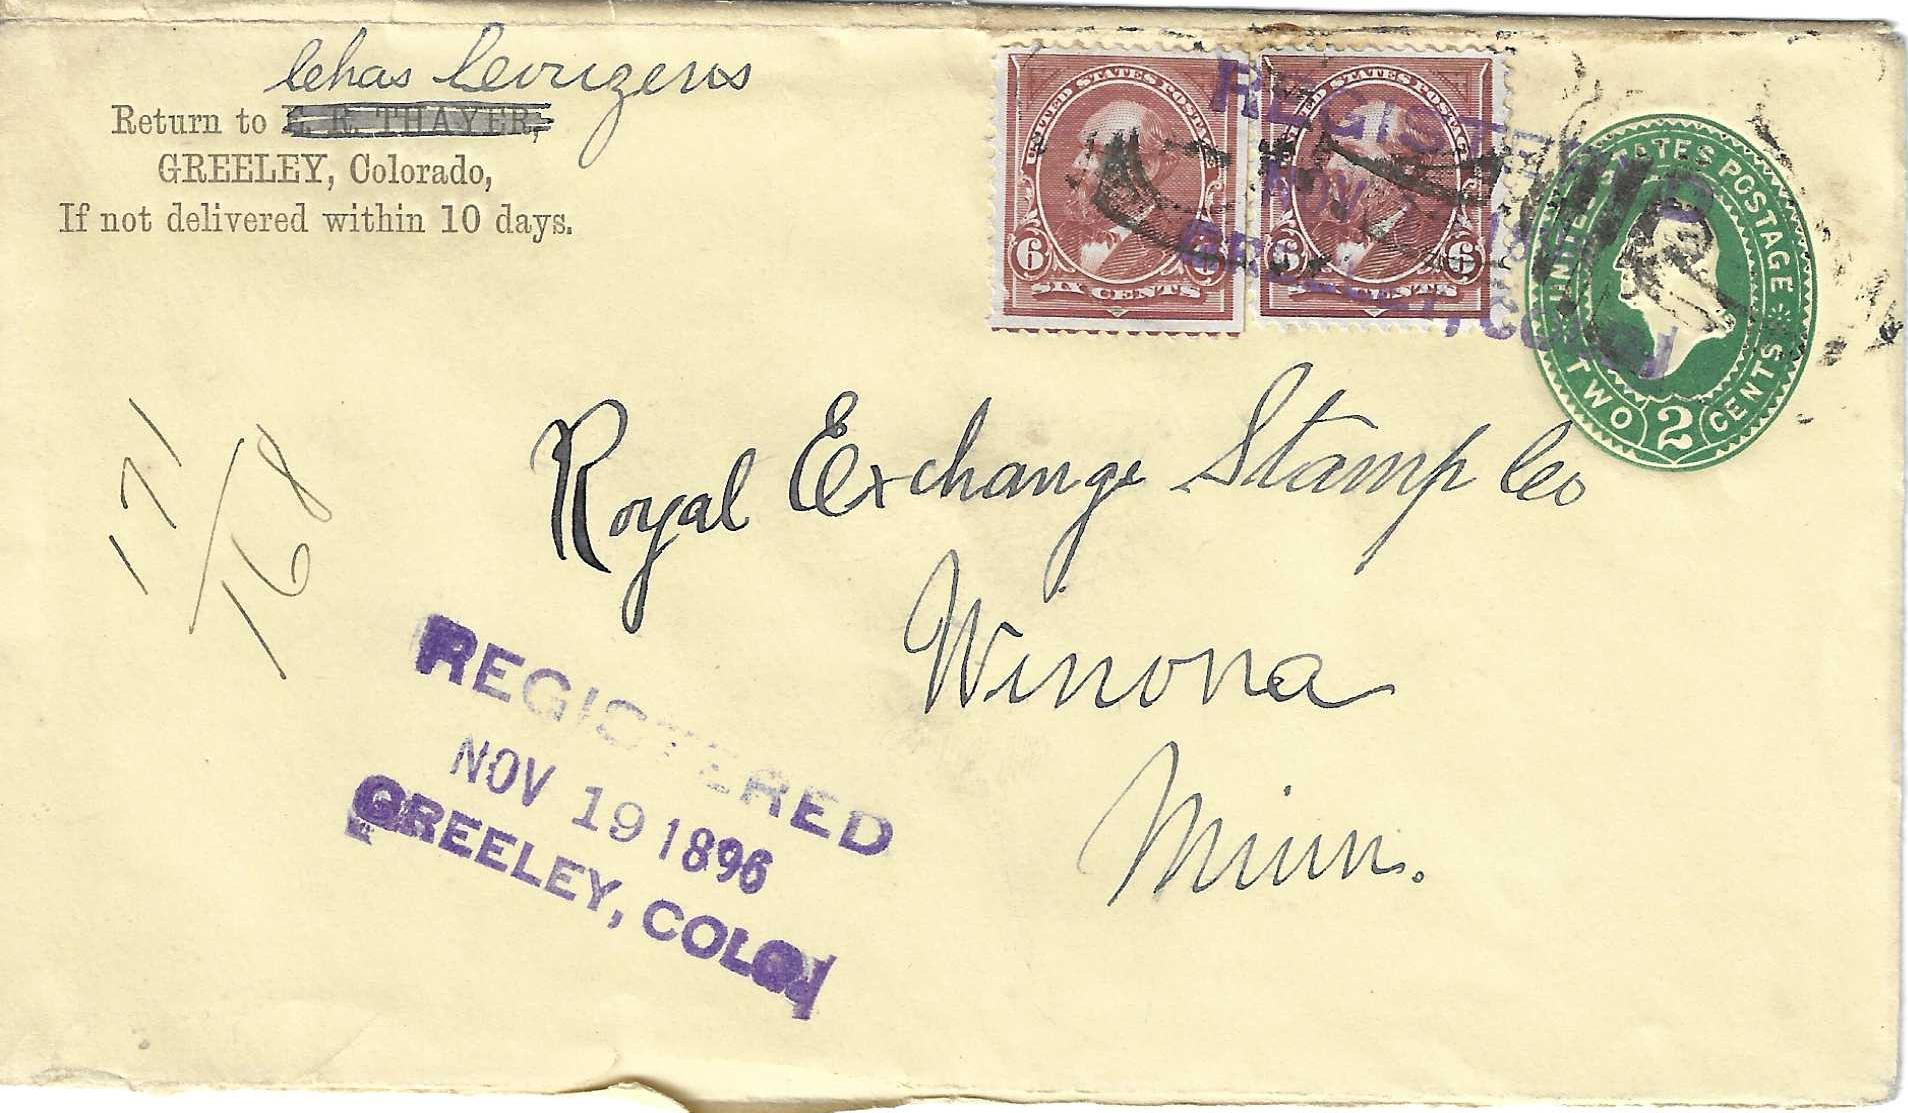 Chas
Return to E. R. THAYER,
GREELEY, Colorado,
If not delivered within 10 days.
UNITED STATES POSTAGE
6 6
SIX CENTS
UNITED STATES POSTAGE
6 6
SIX CENTS
REGISTERED
NOV
GREELEY, COLO.
UNITED STATES POSTAGE
TWO 2 CENTS
Royal Exchange Stamp Co
Winona
Minn.
171
168
REGISTERED
NOV 19 1896
GREELEY, COLO.